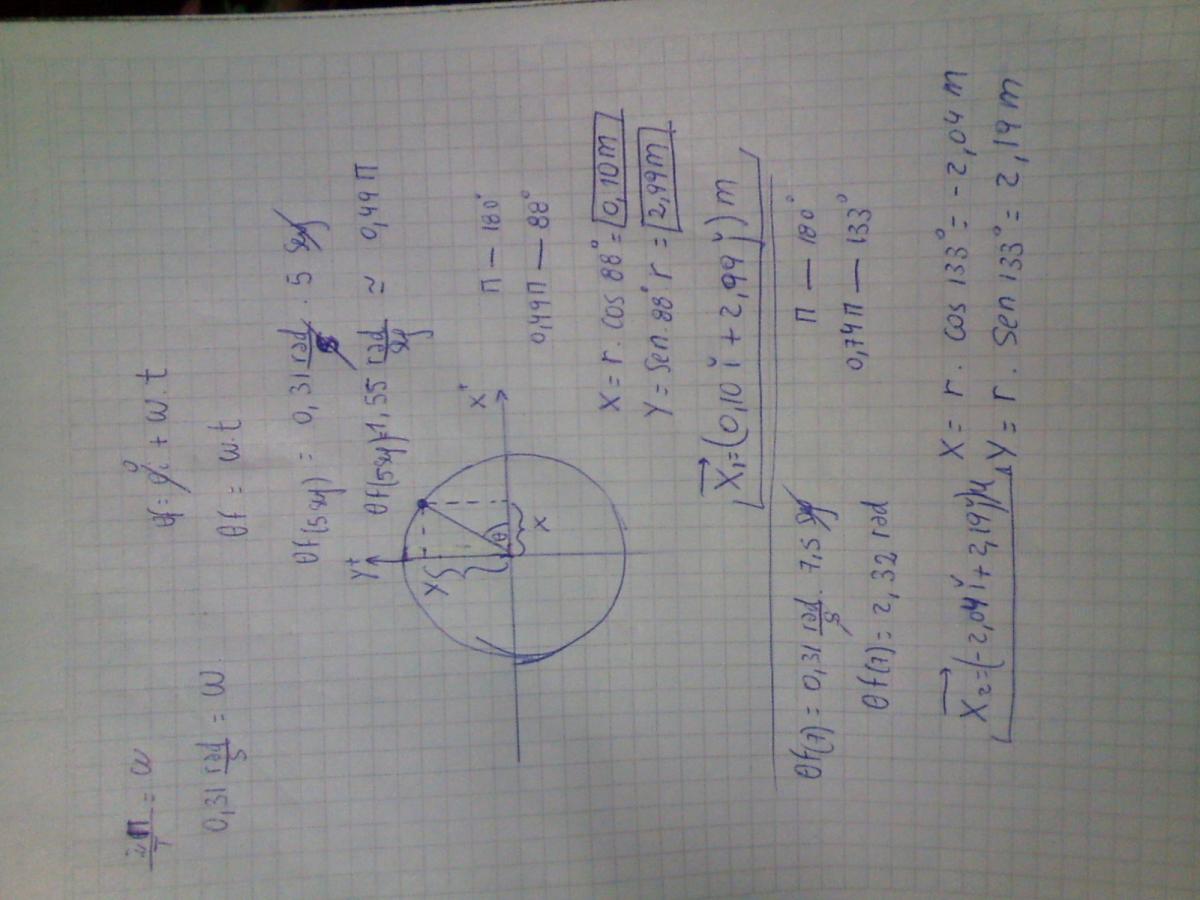 2π/T = ω
0,31 rad/s = ω.
θf = θi 0 + ω.t
θf = ω.t
θf(5seg) = 0,31 rad/s . 5 seg
θf(5seg)=1,55 rad/seg ≈ 0,49 π
Y+
X+
Y
θ
X
π — 180°
0,49π — 88°
X = r. cos 88° = 0,10m
Y = Sen. 88° r = 2,99m
X1=(0,10 i + 2,99 j) m
θf(7) = 0,31 rad/s . 7,5 seg
θf(7) = 2,32 rad
π — 180°
0,74π — 133°
X = r. cos 133° = -2,04 m
Y = r. Sen 133° = 2,19 m
X2=(-2,04 i + 2,19 j)m